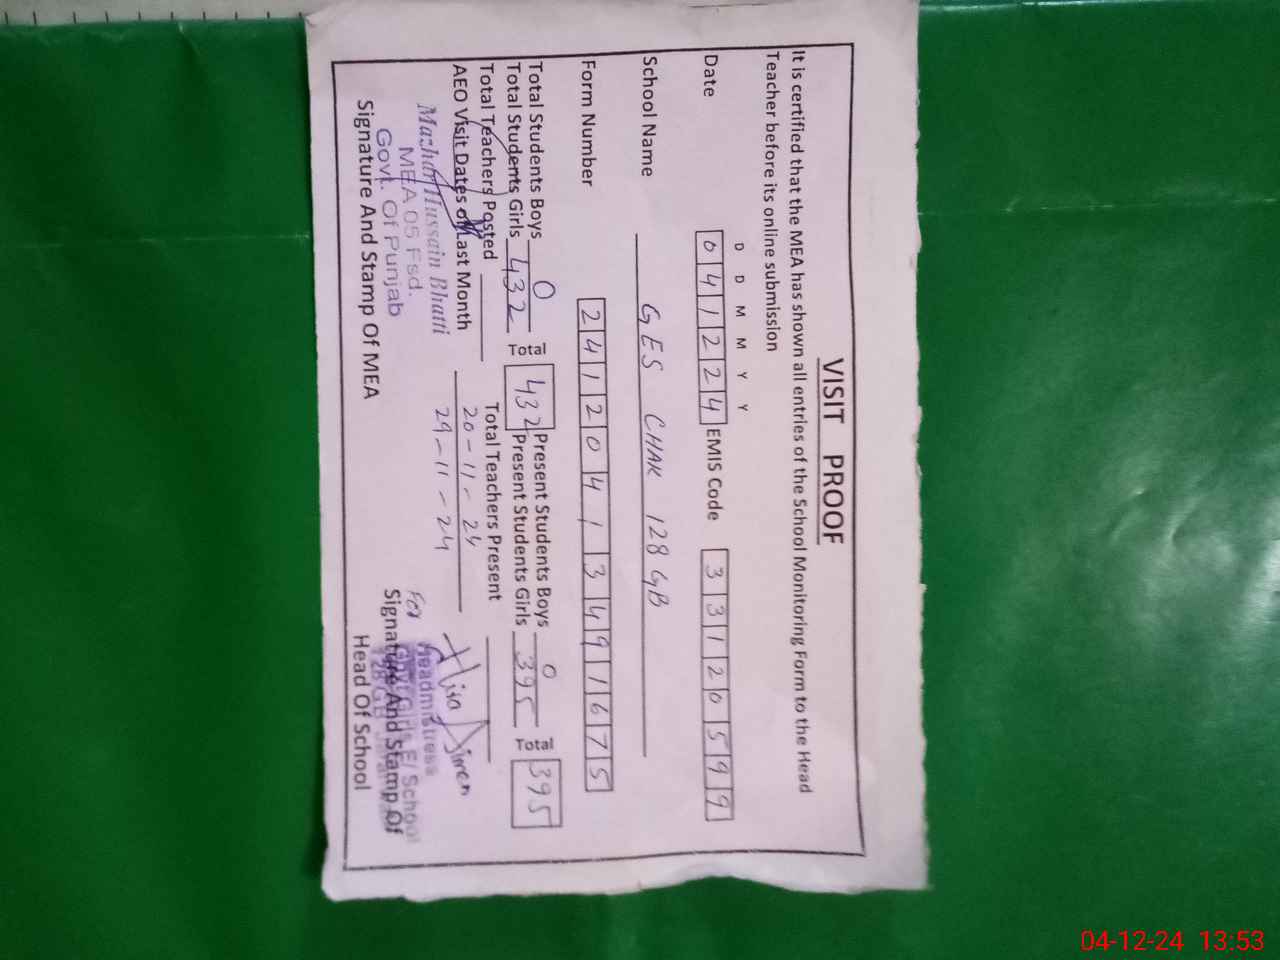 VISIT PROOF
It is certified that the MEA has shown all entries of the School Monitoring Form to the Head
Teacher before its online submission
D D M M Y Y
Date 0 4 1 2 2 4 EMIS Code 3 3 1 2 0 5 9 9
School Name GES CHAK 128 GB
Form Number 2 4 1 2 0 4 1 3 4 9 1 6 7 5
Total Students Boys 0 Total 432 Present Students Boys 0 Total 395
Total Students Girls 432 Present Students Girls 395
Total Teachers Posted Total Teachers Present
AEO Visit Dates of Last Month 20-11-24
29-11-24
Mazhar Hussain Bhatti
MEA 05 Fsd.
Govt. Of Punjab
Signature And Stamp Of MEA
For Headmistress
Govt Girls E/ School
128 GB
Signature And Stamp Of
Head Of School
04-12-24 13:53